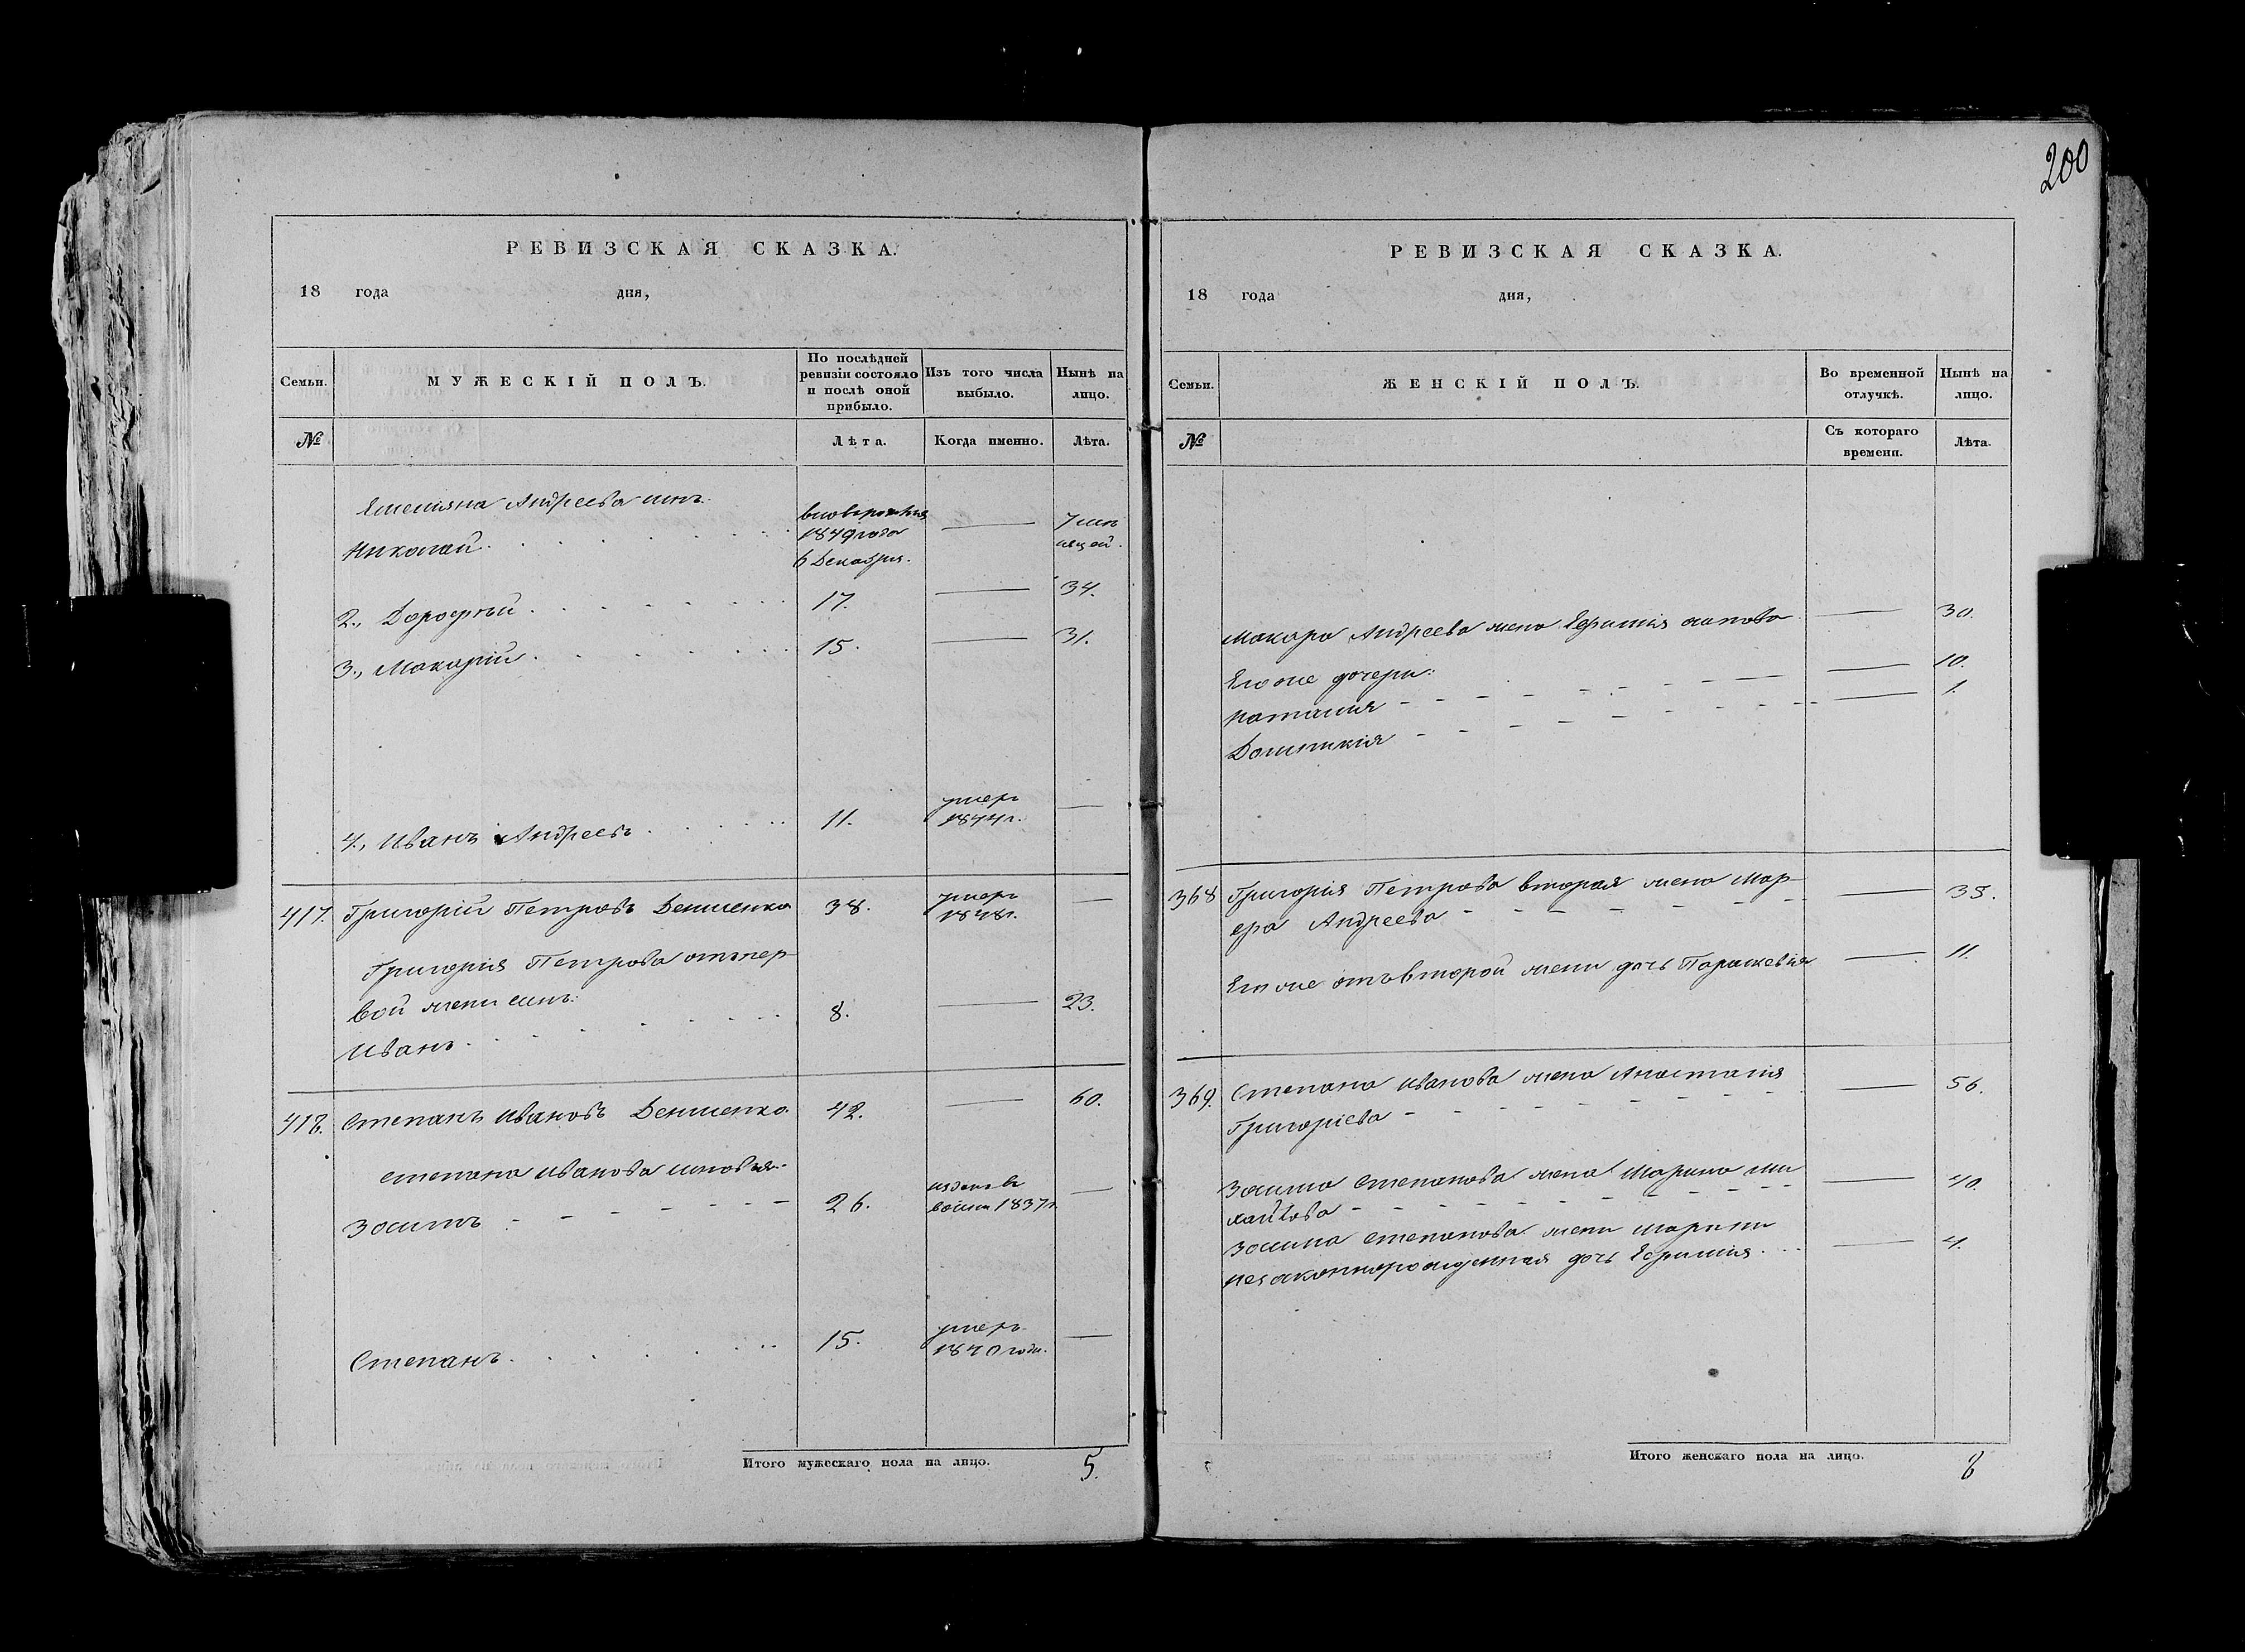 200
РЕВИЗСКАЯ СКАЗКА.
18 года дня,
Семьи.
МУЖЕСКІЙ ПОЛЪ.
По послѣдней
ревизіи состояло
и послѣ оной
прибыло.
Изъ того числа
выбыло.
Нынѣ на
лицо.
№
Лѣта.
Когда именно.
Лѣта.
Емельяна Андреева сынъ:
Николай
1849 года
6 Декабря.
7 мѣс
яцей.
2., Дорофѣй 17. 34.
3., Макарій 15. 31.
4., Иванъ Андреевъ 11. умеръ
1844 г.
417. Григорій Петровъ Денисенко 38. умеръ
1848 г.
Григорія Петрова отъ пер-
вой жены сынъ:
Иванъ 8. 23.
418. Степанъ Ивановъ Денисенко. 42. 60.
Степана Иванова сыновья:
Зосимъ 26. 1837 г.
Степанъ 15. умеръ
1840 года.
Итого мужескаго пола на лицо. 5.
РЕВИЗСКАЯ СКАЗКА.
18 года дня,
Семьи.
ЖЕНСКІЙ ПОЛЪ.
Во временной
отлучкѣ.
Нынѣ на
лицо.
№
Съ котораго
времени.
Лѣта.
Макара Андреева жена Ефимія 30.
Его же дочери:
Наталія 10.
Домникія 1.
368 Григорія Петрова вторая жена Мар-
Андреева 35.
Его же отъ второй жены дочь Параскевія 11.
369. Степана Иванова жена Анастасія
Григоріева 56.
Зосима Степанова жена Марина Ми
хайлова 40.
Зосима Степанова жены Марины
незаконнорожденная дочь Ефимія 4.
Итого женскаго пола на лицо. 8